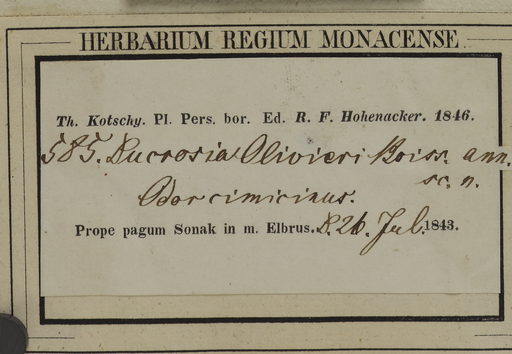 HERBARIUM REGIUM MONACENSE
Th. Kotschy. Pl. Pers. bor. Ed. R. F. Hohenacker. 1846.
585. Ducrosia Olivieri Boiss. ann.
sc. n.
Odor cimicinus.
Prope pagum Sonak in m. Elbrus. D. 26. Jul. 1843.